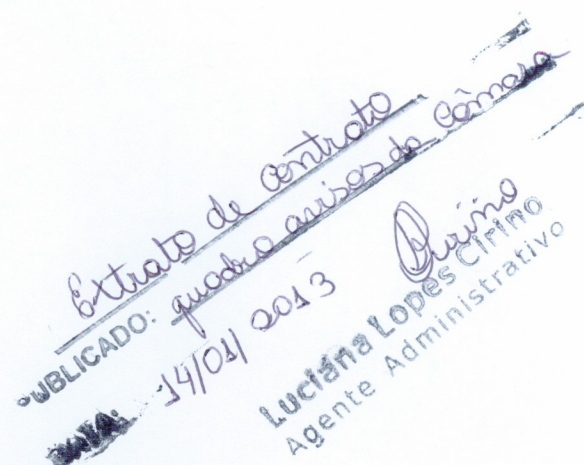 Extrato de contrato
PUBLICADO: quadro avisos da Câmara
DATA: 14/01/2013 Cirino
Luciana Lopes Cirino
Agente Administrativo